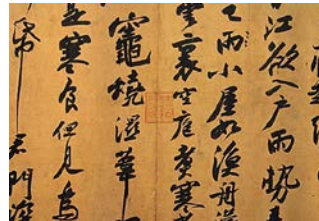 江欲入户雨勢
已雨小屋如漁舟
雲裏空庖煮寒菜
竈燒濕葦
是寒食但見烏
帋君門深